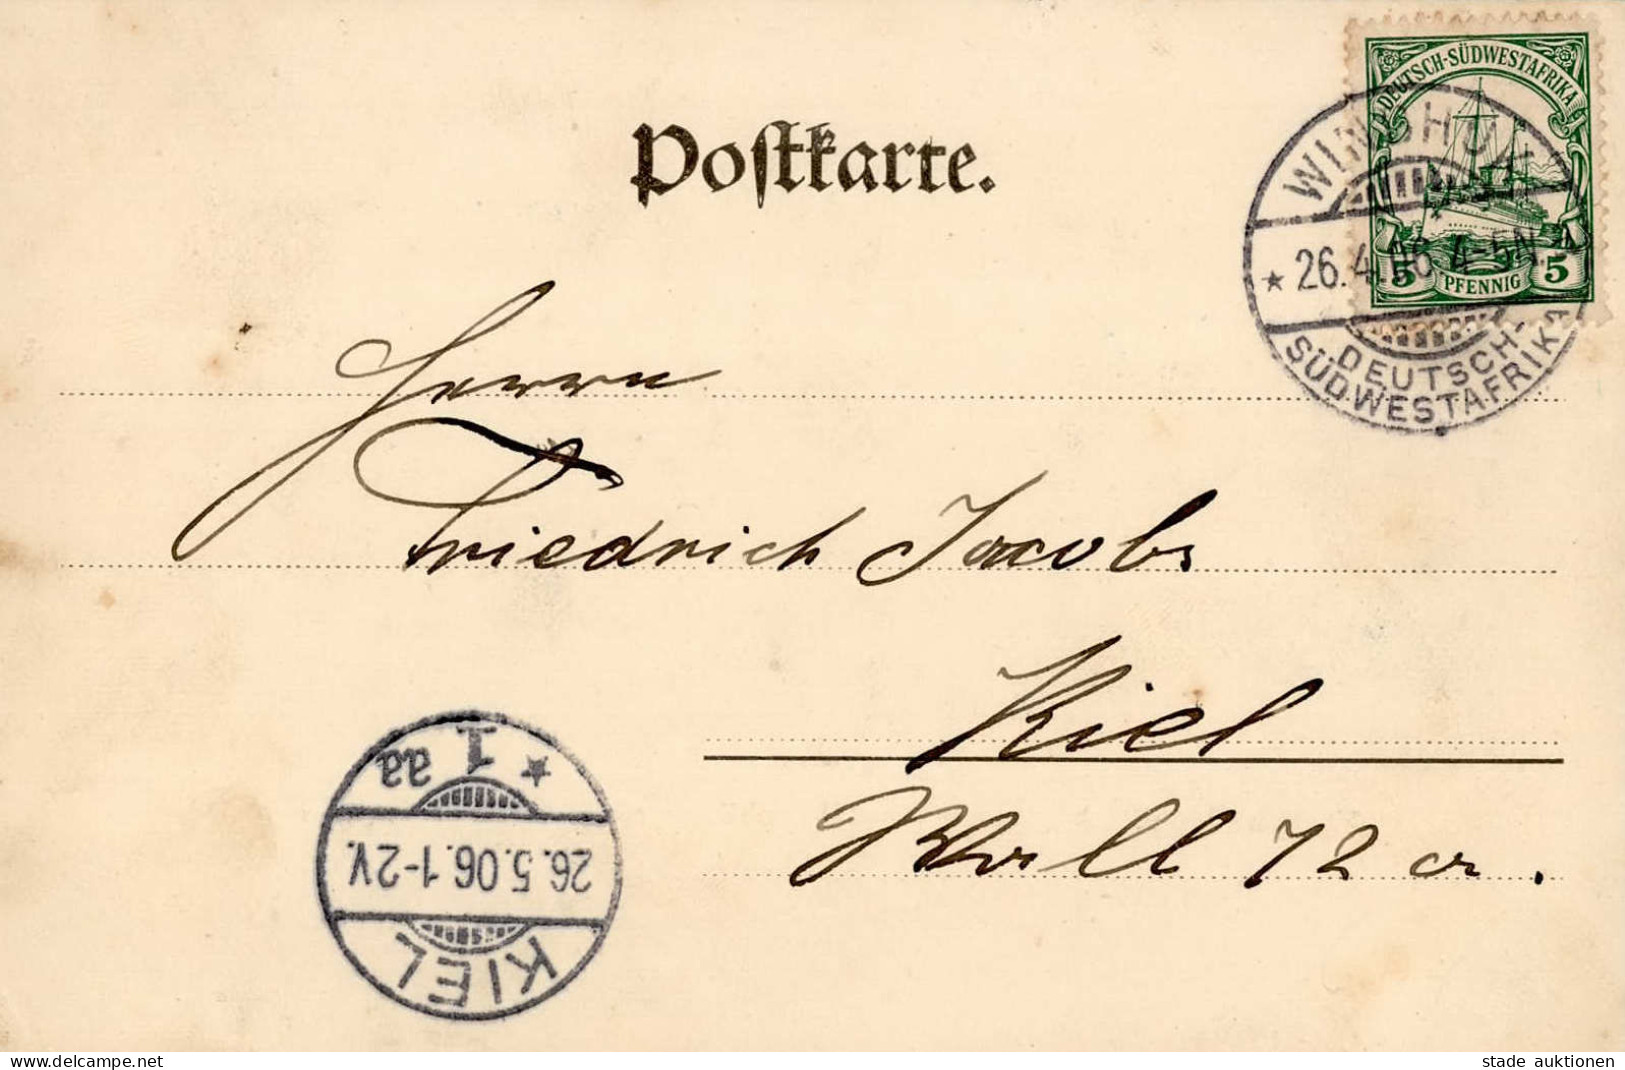 Postkarte.
DEUTSCH-SÜDWESTAFRIKA
5 PFENNIG 5
WINDHUK
* 26.4.06. 4-5N.
DEUTSCH-
SÜDWESTAFRIKA
Herrn
Friedrich Jacobs
Kiel
Wall 72 a.
KIEL
26.5.06. 1-2V.
* 1 aa
delcampe.net
stade auktionen